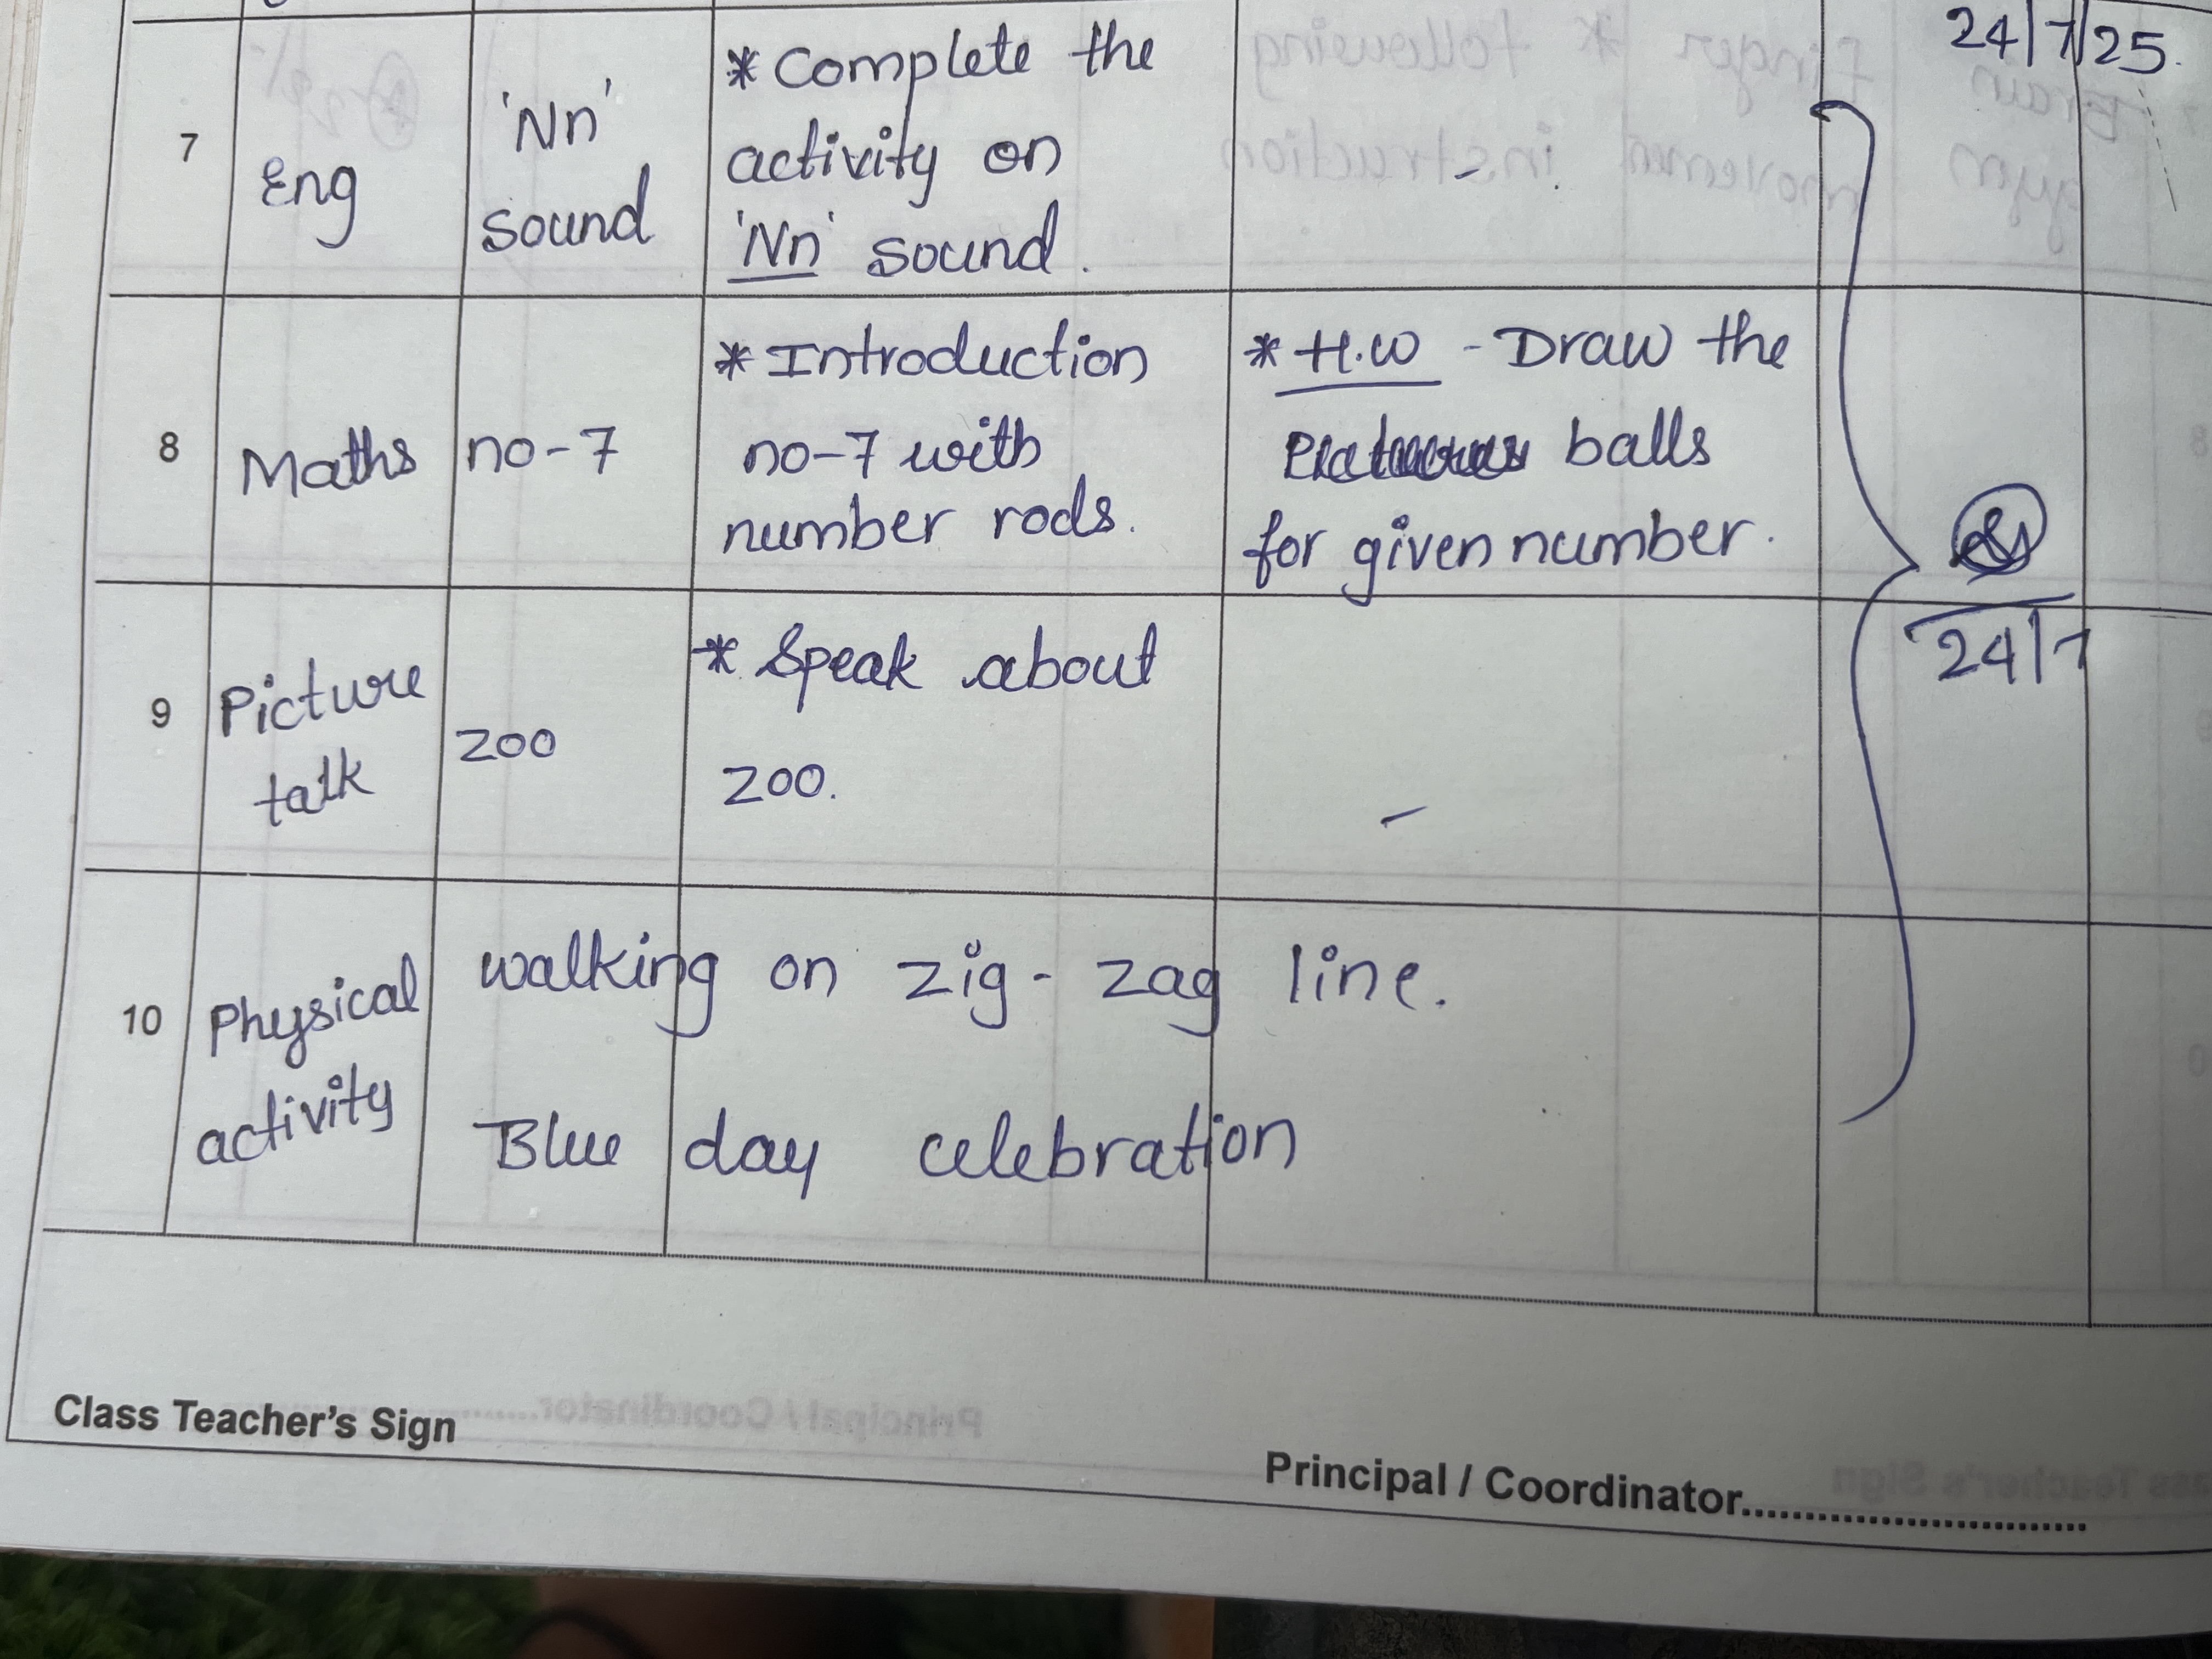 24/7/25.
7 Eng 'Nn' sound * Complete the activity on 'Nn' sound. -
8 Maths no-7 * Introduction no-7 with number rods. * H.W - Draw the balls for given number.
24/7
9 Picture talk zoo * Speak about zoo. -
10 Physical activity walking on zig-zag line.
Blue day celebration
Class Teacher's Sign
Principal / Coordinator..............................